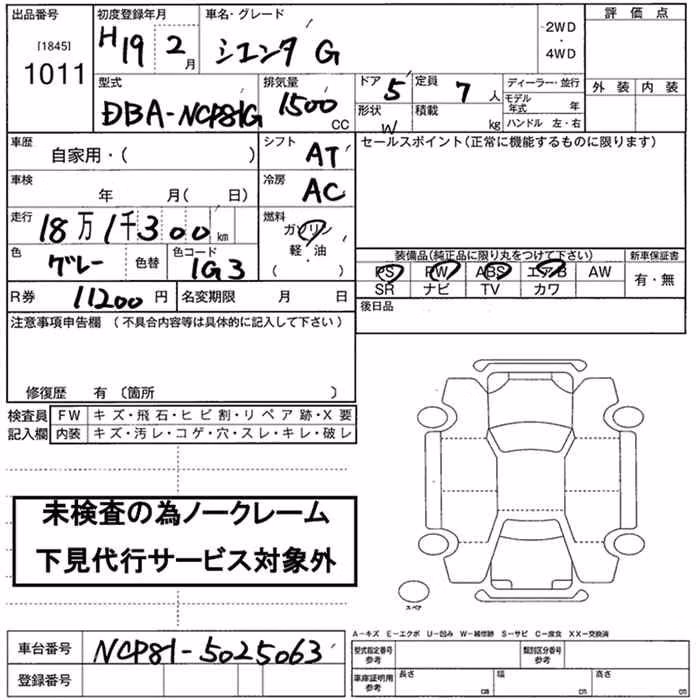 出品番号 初度登録年月 車名・グレード 評価点
[1845] H19 2月 シエンタ G 2WD・4WD
1011 外装 内装
型式 排気量 ドア 5 定員 7人 ディーラー・並行
DBA-NCP81G 1500 CC 形状 W 積載 kg モデル年式 年 ハンドル 左・右
車歴 自家用・( ) シフト AT セールスポイント(正常に機能するものに限ります)
車検 年 月( 日) 冷房 AC
走行 18万1千300km 燃料 ガソリン 軽・油 ( )
色 グレー 色替 色コード 1G3 装備品(純正品に限り丸をつけて下さい) 新車保証書
PS PW ABS エアB AW 有・無
R券 11200円 名変期限 月 日 SR ナビ TV カワ
後日品
注意事項申告欄 (不具合内容等は具体的に記入して下さい)
修復歴 有 (箇所 )
検査員 FW キズ・飛石・ヒビ割・リペア跡・X要
記入欄 内装 キズ・汚レ・コゲ・穴・スレ・キレ・破レ
未検査の為ノークレーム
下見代行サービス対象外
スペア
A-キズ E-エクボ U-凹み W-補修跡 S-サビ C-腐食 XX-交換済
車台番号 NCP81-5025063 型式指定番号 参考 類別区分番号 参考
登録番号 車庫証明用 参考 長さ cm 幅 cm 高さ cm